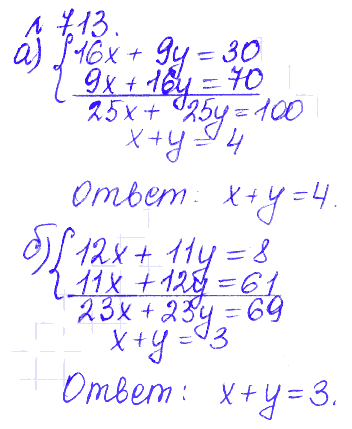 № 713.
а) { 16x + 9y = 30
9x + 16y = 70
25x + 25y = 100
x + y = 4
Ответ: x + y = 4.
б) { 12x + 11y = 8
11x + 12y = 61
23x + 23y = 69
x + y = 3
Ответ: x + y = 3.